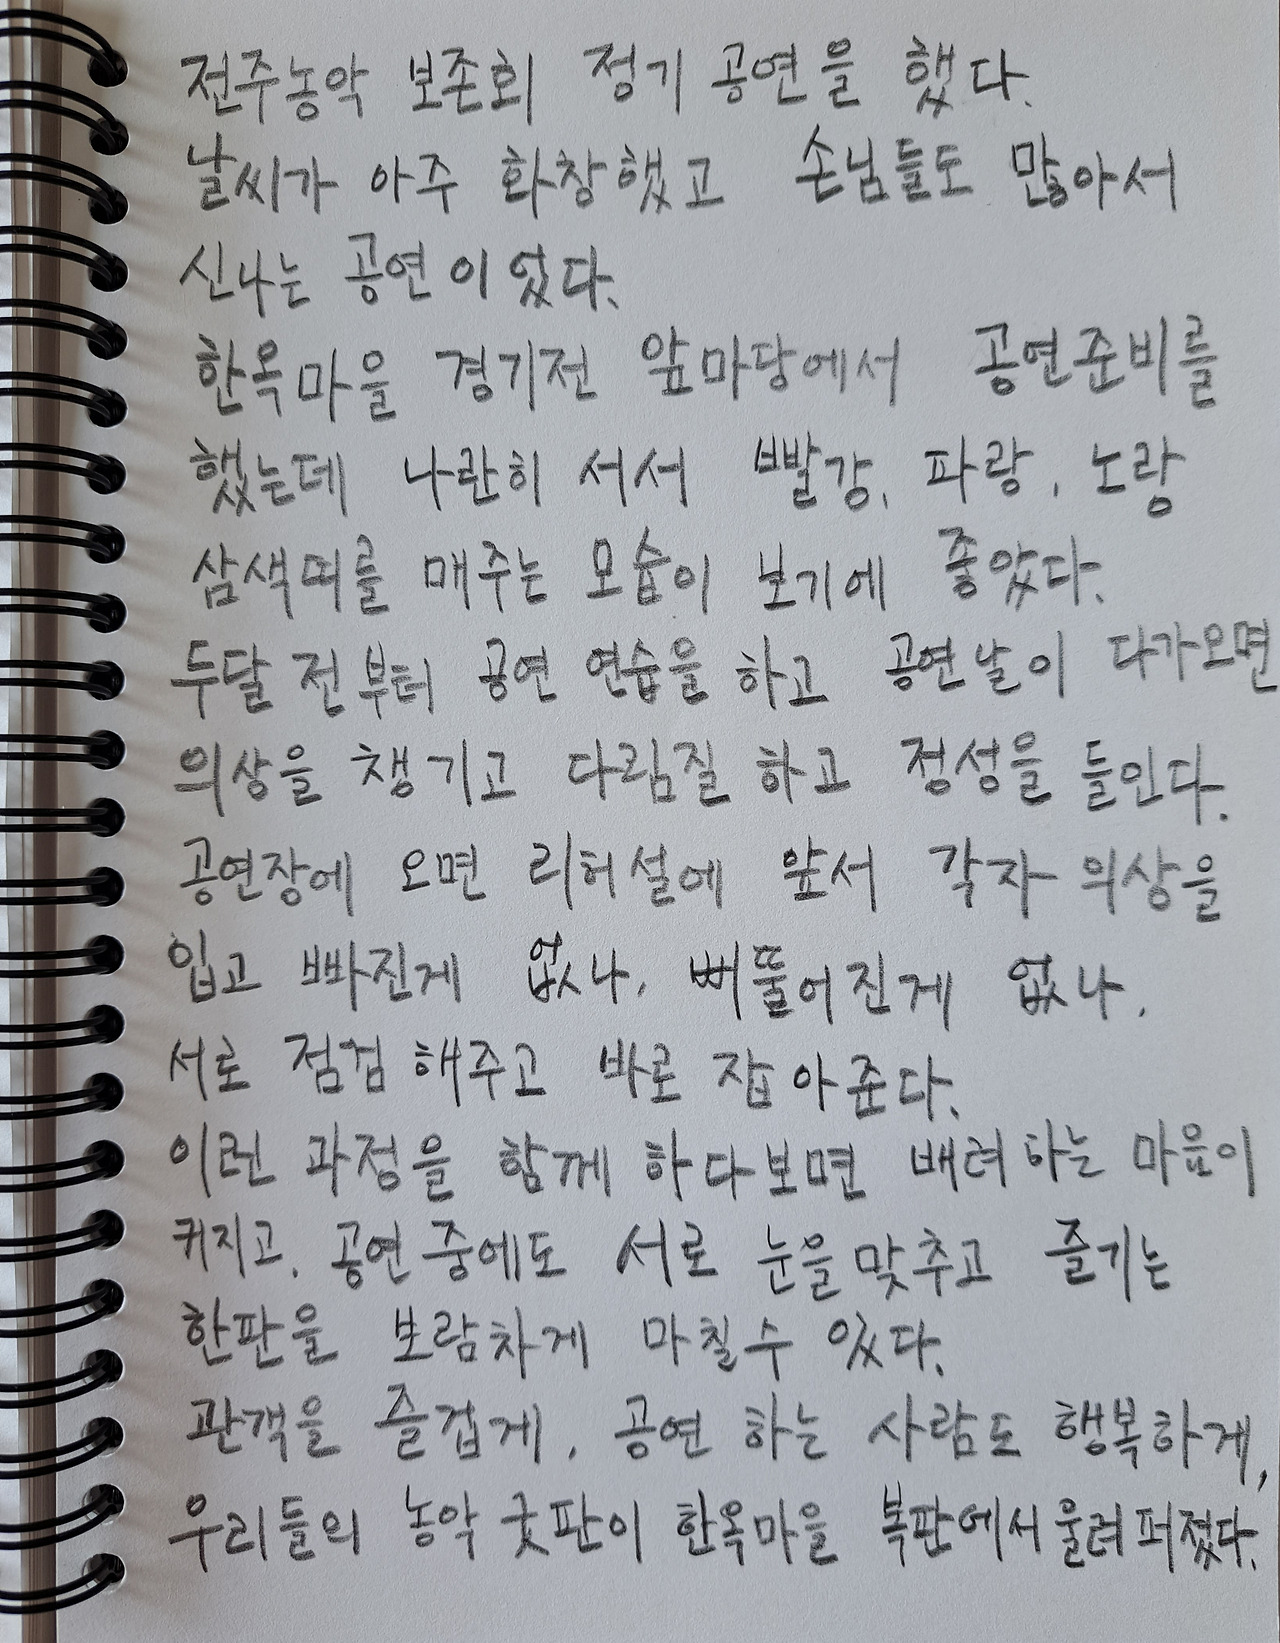 전주농악 보존회 정기 공연을 했다.
날씨가 아주 화창했고 손님들도 많아서
신나는 공연이었다.
한옥마을 경기전 앞마당에서 공연준비를
했는데 나란히 서서 빨강, 파랑, 노랑
삼색띠를 매주는 모습이 보기에 좋았다.
두달 전부터 공연 연습을 하고 공연날이 다가오면
의상을 챙기고 다림질 하고 정성을 들인다.
공연장에 오면 리허설에 앞서 각자 의상을
입고 빠진게 없나, 삐뚤어진게 없나,
서로 점검 해주고 바로 잡아준다.
이런 과정을 함께 하다보면 배려하는 마음이
커지고, 공연 중에도 서로 눈을 맞추고 즐기는
한판을 보람차게 마칠수 있다.
관객을 즐겁게, 공연 하는 사람도 행복하게,
우리들의 농악 굿판이 한옥마을 복판에서 울려퍼졌다.